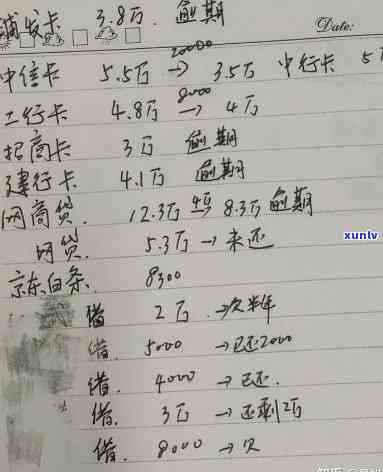 浦发卡 3.8万 逾期
Date:
20000
中信卡 5.5万 → 3.5万 中行卡 5万
8000
工行卡 4.8万 → 4万
招商卡 3万 逾期
建行卡 4.1万 逾期
网商贷. 12.3万 8.3万 逾期
网贷. 5.3万 → 未还
xunlv
京东白条. 8300
借 2万 → 欠半年
借. 5000 → 已还2000
借. 4000 → 已还.
借. 3万 → 还剩2万
借. 8000 → 欠
知乎